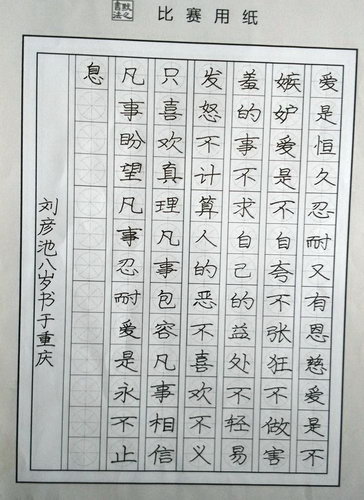 比赛用纸
爱是恒久忍耐又有恩慈爱是不
嫉妒爱是不自夸不张狂不做害
羞的事不求自己的益处不轻易
发怒不计算人的恶不喜欢不义
只喜欢真理凡事包容凡事相信
凡事盼望凡事忍耐爱是永不止
息
刘彦池八岁书于重庆